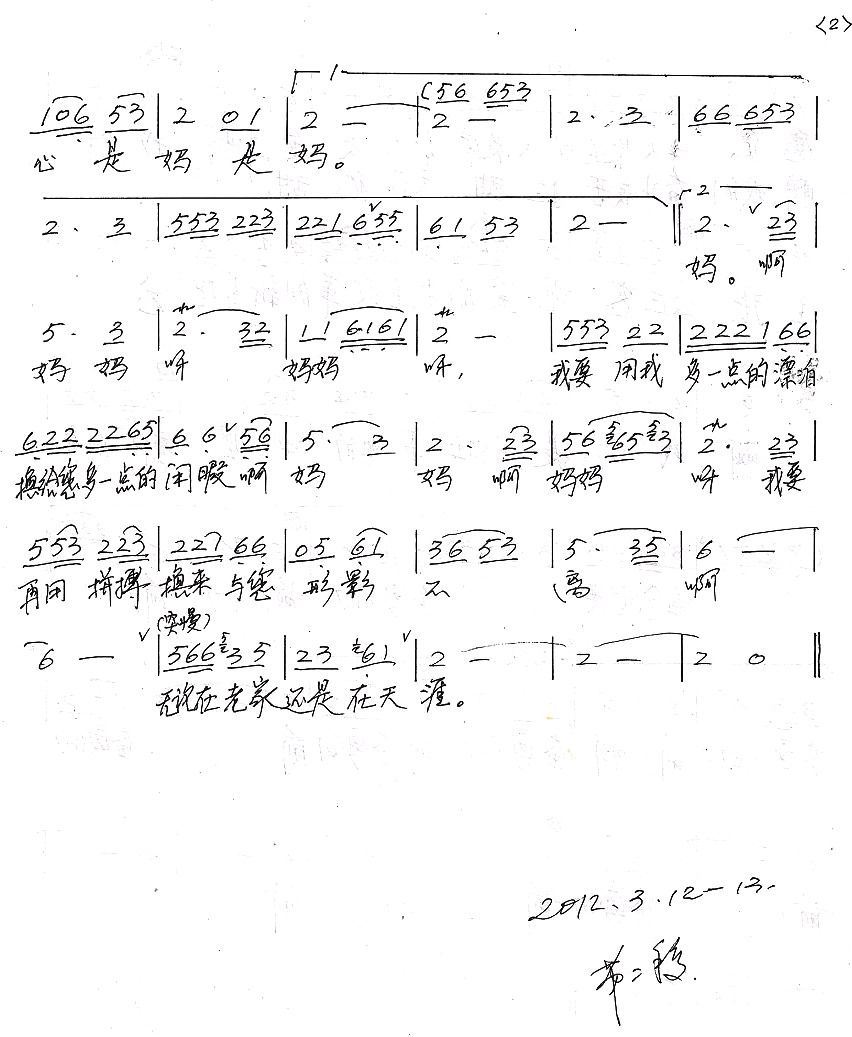 <2>
1
(56 653
106 53 | 2 01 | 2 — | 2 — | 2· 3 | 66 653 |
心 是 妈 是 妈。
2
2· 3 | 553 223 | 221 6∨55 | 61 53 | 2 — ‖ 2· ∨ 23 |
妈。 啊
5· 3 | 2· 32 | 11 6161 | 2 — | 553 22 | 2221 66 |
妈 妈 呀 妈妈 呀, 我要 用我 多一点的 漂泊
622 2265 | 6 6 ∨ 56 | 5· 3 | 2· 23 | 56 5 65 5 3 | 2· 23 |
换给您多一点的 闲暇 啊 妈 妈 啊 妈妈 呀 我要
553 223 | 221 66 | 05 61 | 36 53 | 5· 35 | 6 — |
再用 拼搏 换来 与您 形影 不 离 啊
(突慢)
6 — ∨ | 566 5 35 | 23 61 ∨ | 2 — | 2 — | 2 0 ‖
无论在老家 还是 在天 涯。
2012.3.12—13.
第二稿